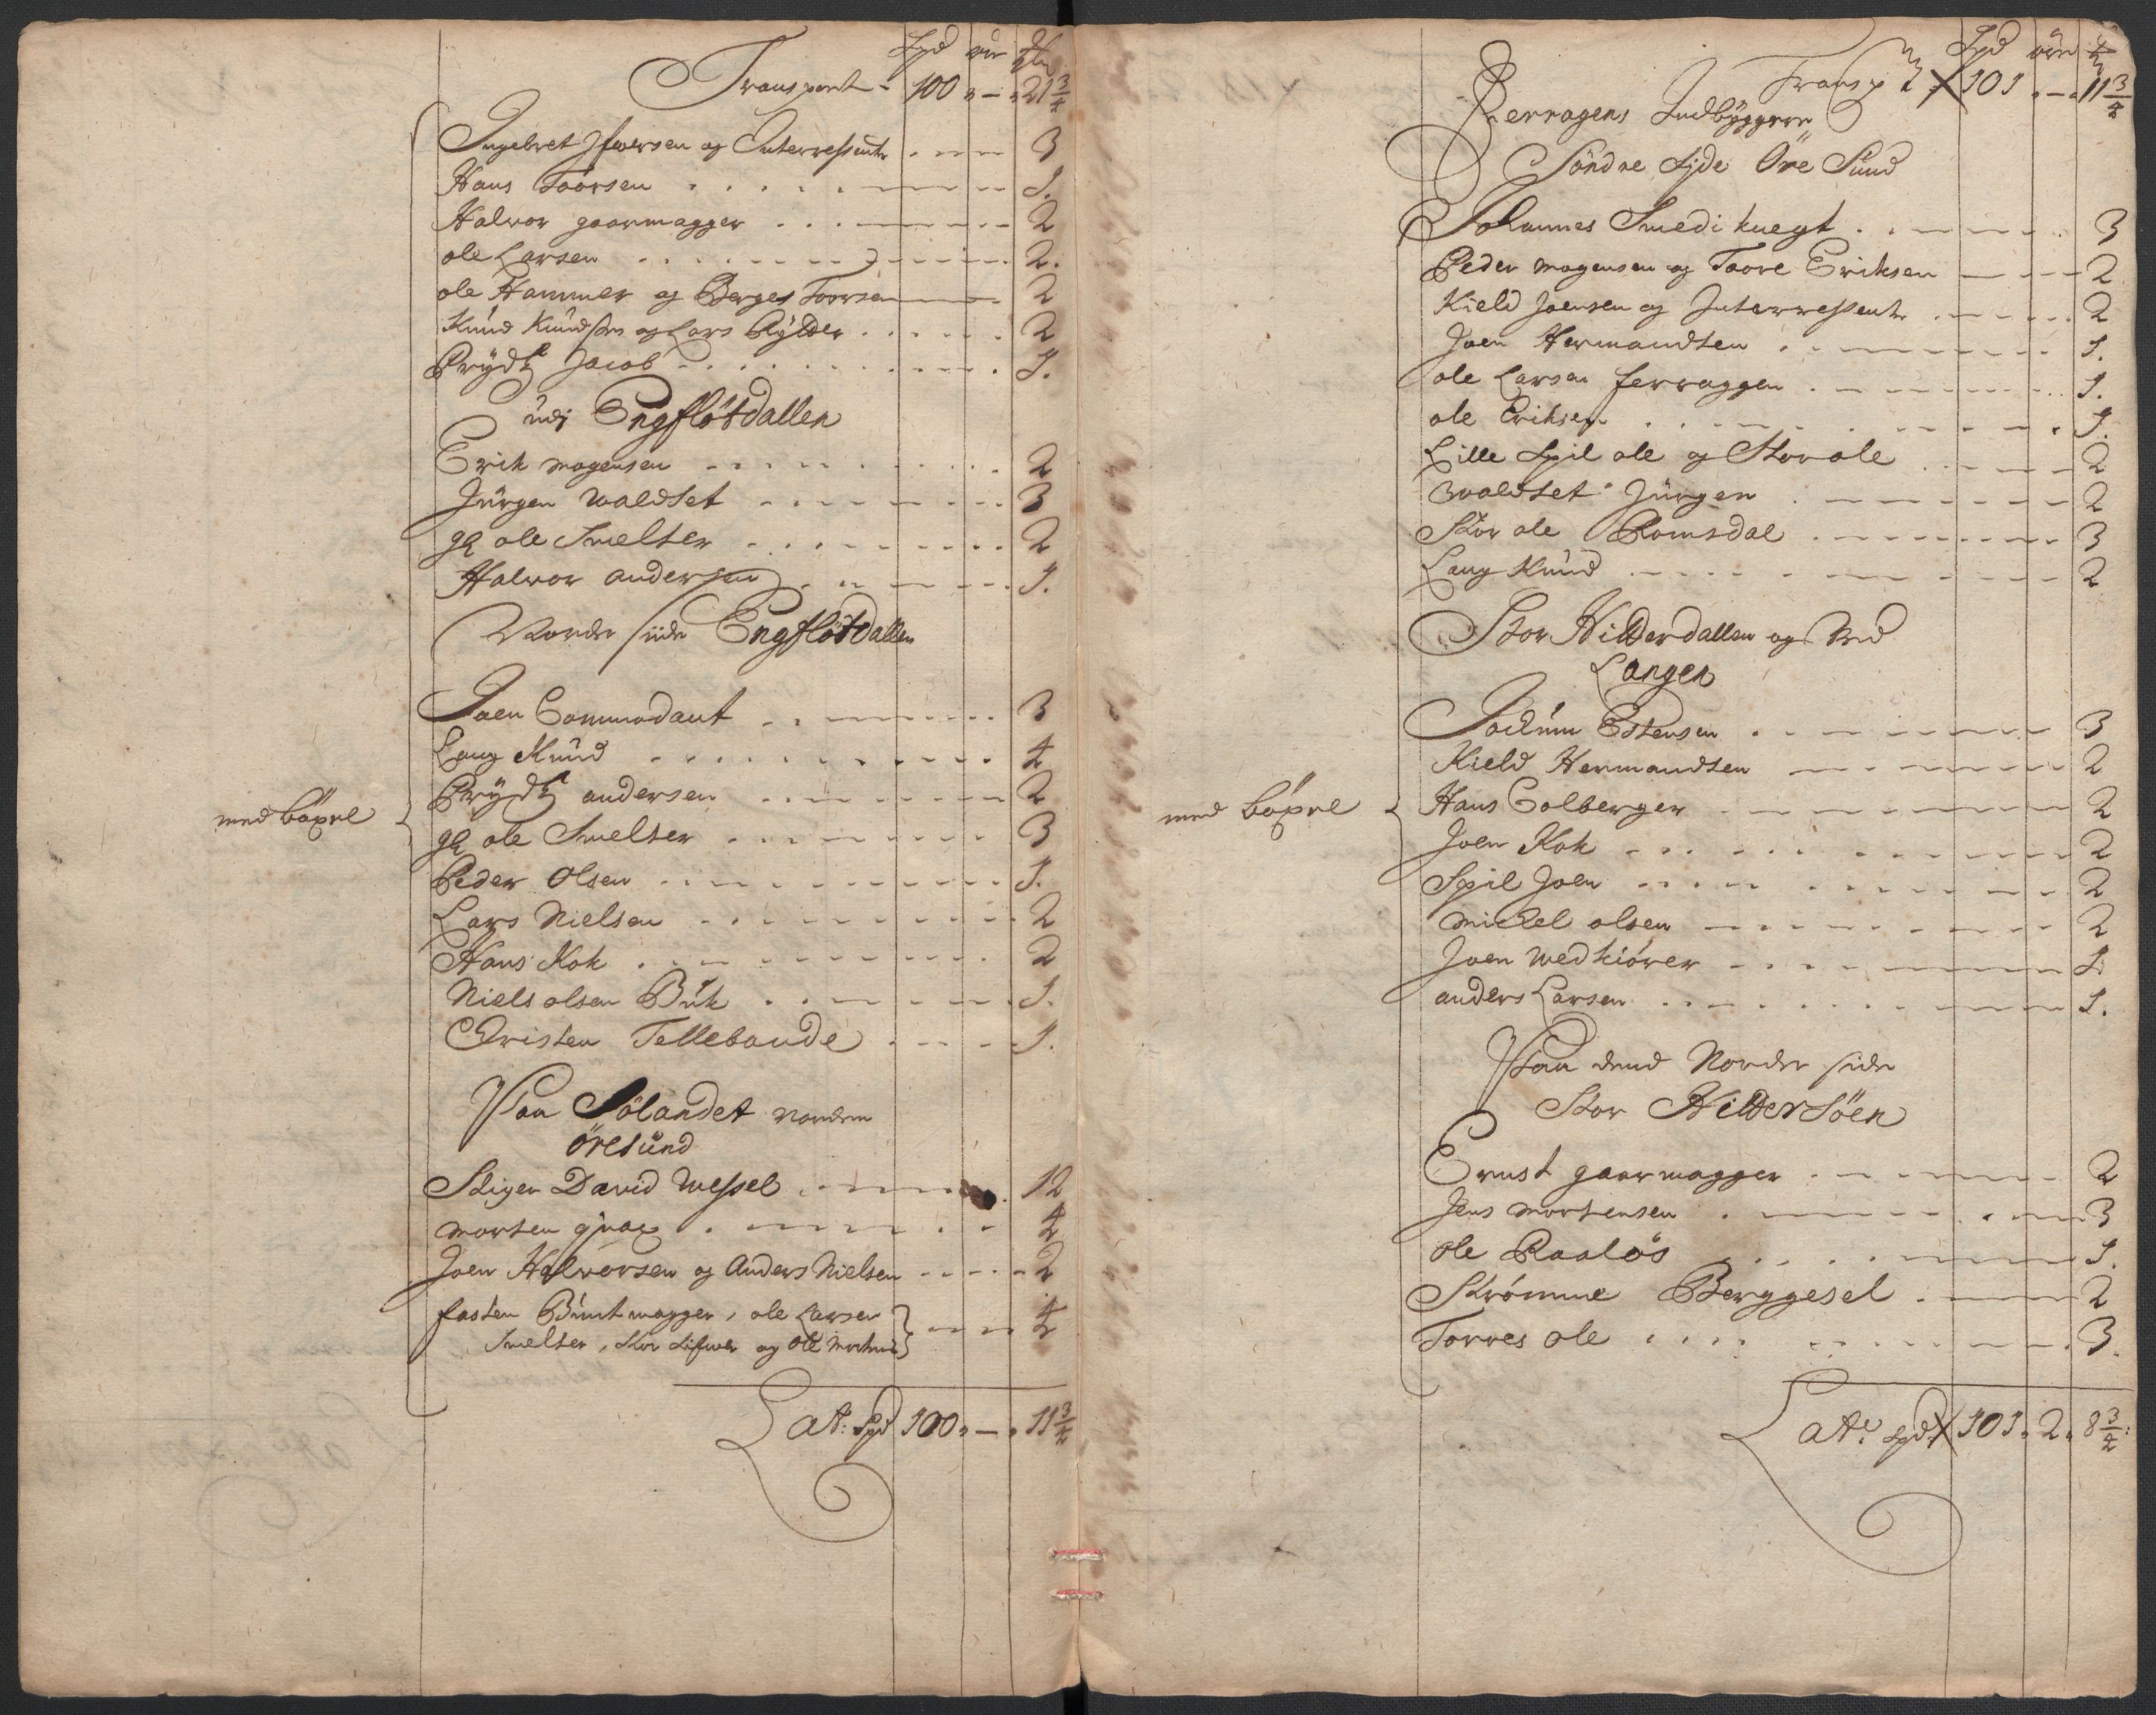 Lpd
Transport - 100 „ — „ 21 3/4
Ingebret Ifwersen og Interressentr 3
Hans Toorsen 1.
Halvor gaarmagger 2
ole Larsen 2.
ole Hammer og Berges Toorsen 2
Knud Knudsen og Lars Rylder 2
Jacob 1.
udj Engfløtdallen
Erik Mogensen 2
Jürgen waldset 3
gl ole Smelter 2
Halvor andersen 1.
Nordr siide Engflötdallen
Joen Commodant 3
Lang Knud 4
andersen 2
med böxel
gl ole Smelter 3
Peder Olsen 1.
Lars Nielsen 2
Hans Kok 2
Niels olsen Buk 1.
Christen Tellebonde 1.
Paa Sölandet norden
öresund
Stiger David Wessel 12
morten 4
Joen Halvorsen og Anders Nielsen 2
fasten Buntmagger, ole Larsen
Smelter, Stor og ole 4
Lat: Lpd 100 „ — „ 11 3/4
Lpd
Transp 101 „ — „ 11 3/4
Ferragens Indbyggere
Søndre Sjde Öre Sund
Johannes Smedi knegt 3
Peder Mogensen og Toore Eriksen 2
Kield Joensen og Interressentr 2
Joen Hermandsen 1.
ole Larsen ferraggen 1.
ole Eriksen 1.
Lille Spil ole og Storole 2
waldset Jürgen 2
Stor ole Romsdal 3
Lang Knud 2
Stor Hitterdallen og Ved
Langen
Jochum Estensen 3
Kield Hermandsen 2
med böxel
Hans Colberger 2
Joen Kok 2
Spil Joen 2
michel olsen 2
Joen wedkiörer 1.
anders Larsen 1.
Paa dend Nordr side
Stor Hittersöen
Ernst gaarmagger 2
Jens Mortensen 3
ole Raaløs 1.
Strömme Berggesel 2
Torres ole 3.
Late Lpd 101 „ 2 „ 8 3/4